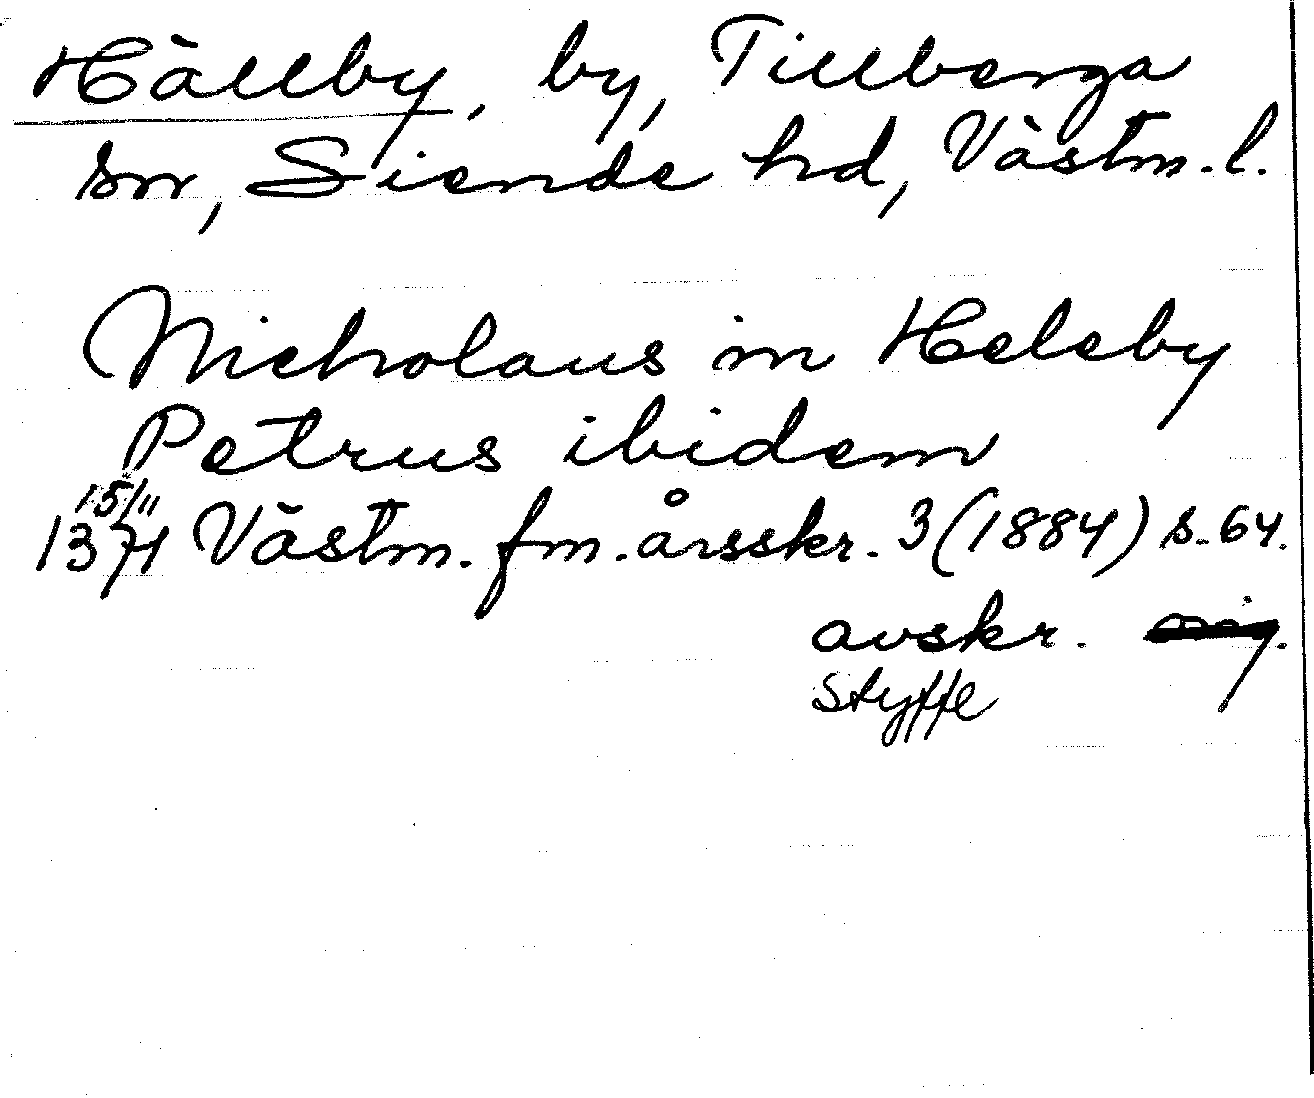 Hällby, by, Tillberga
sn, Siende hd, Västm. l.
Nicholaus in Heleby
Petrus ibidem
15/11
1371 Västm. fm. årsskr. 3 (1884) s. 64.
avskr.
Styffe